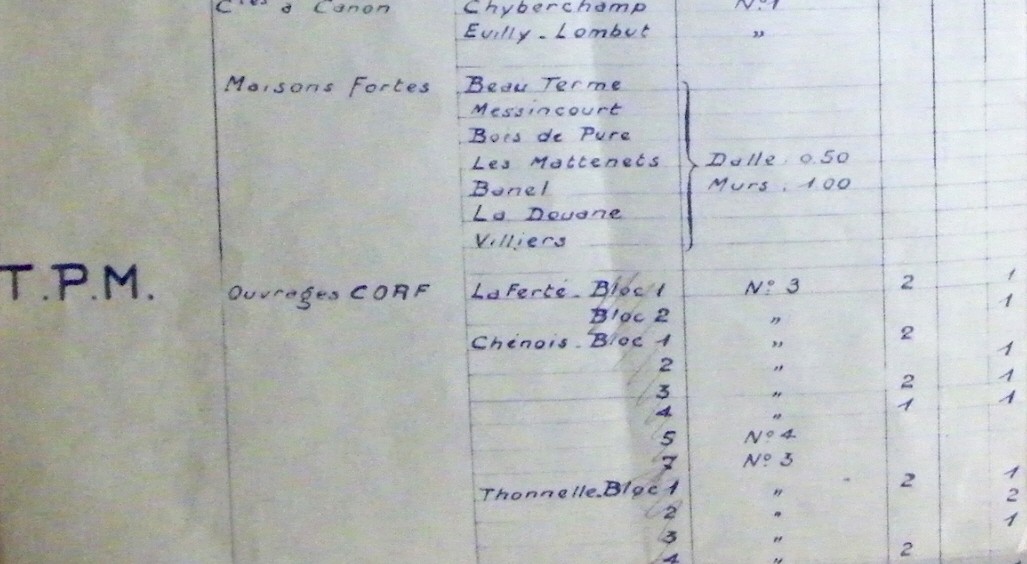 Cies à Canon Chyberchamp N°1
Euilly - Lombut "
Maisons Fortes Beau Terme
Messincourt
Bois de Pure
Les Mattenets Dalle : 0.50
Banel Murs : 1.00
La Douane
Villiers
T.P.M. Ouvrages CORF La Ferté - Bloc 1 N° 3 2 1
Bloc 2 " 1
Chénois - Bloc 1 " 2
2 " 1
3 " 2 1
4 " 1 1
5 N° 4
7 N° 3
Thonnelle - Bloc 1 " 2 1
2 " 2
3 " 1
4 " 2